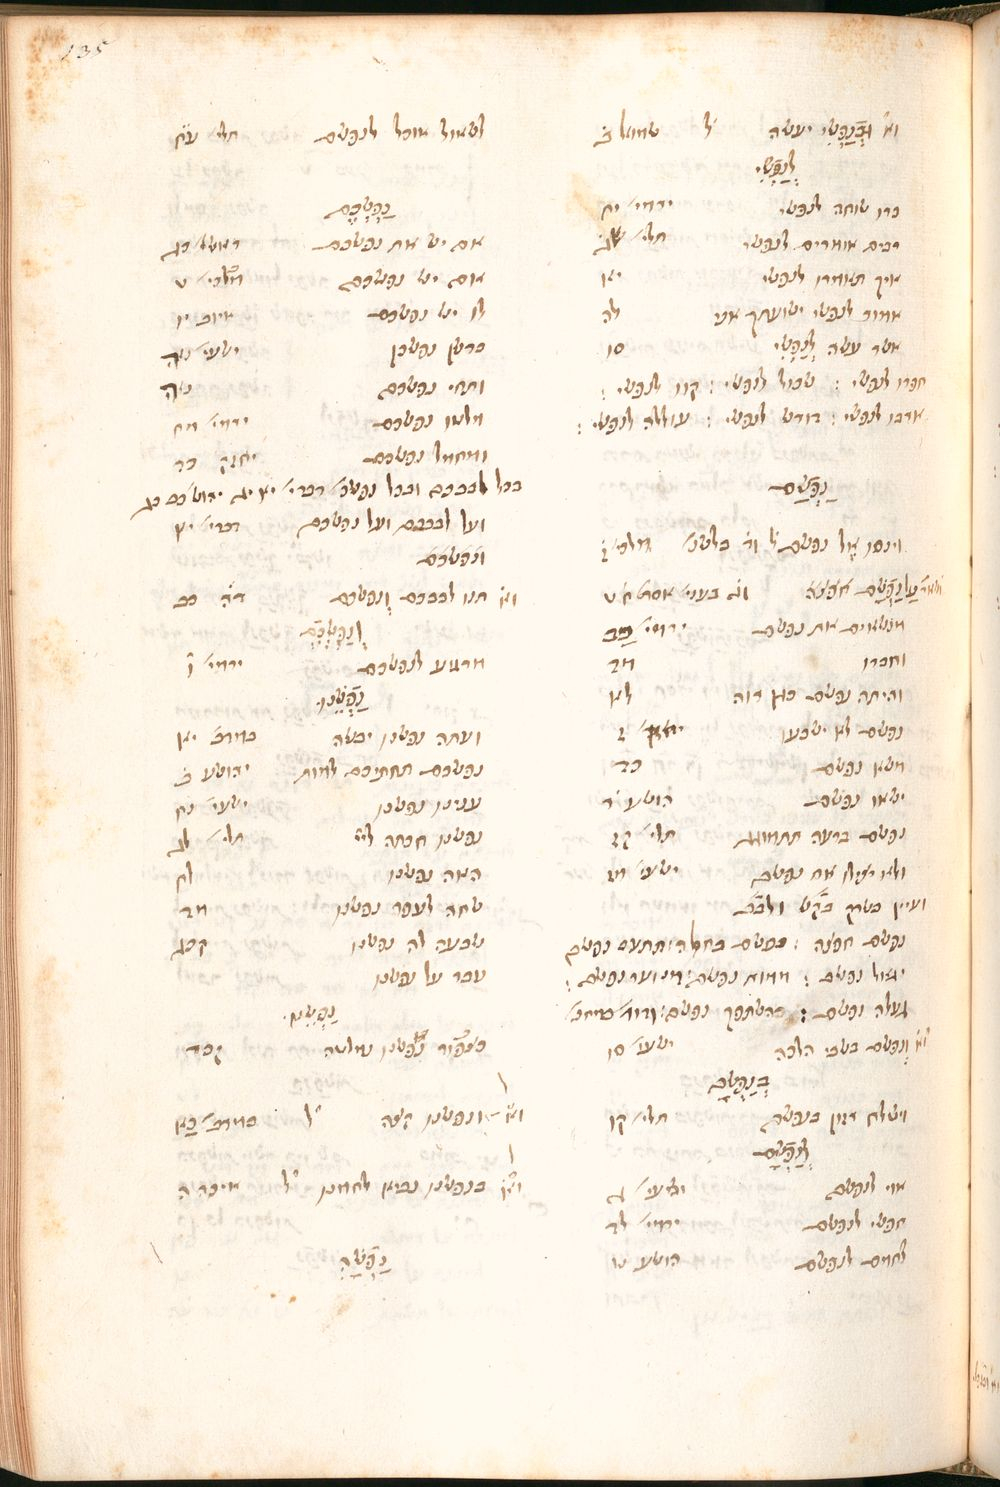 135
וא' וּבְנַפְשִׁי יעשה ל' שמואל ב
לְנַפְשִׁי
כרו שוחה לנפשי ירמי' יח
רבים אומרים לנפשי תלי' ג
איך תאמרו לנפשי יא
אמור לנפשי ישועתך אני לה
אשר עשה לְנַפְשִׁי סו
חפרו לנפשי : שכול לנפשי : קוו לנפשי :
ארבו לנפשי : דורש לנפשי : עוללה לנפשי :
נַפְשָׁם
וינסו אל נפשם ל' מלכי' ז
על נַפְשָׁם אסתר ט
מנשאים את נפשם ירמי' כב
וחברו מד
והיתה נפשם כגן רוה לא
נפשם לא ישבעו יחזק' ז
משא נפשם כד
ישאו נפשם הושע ד
נפשם ברעה תתמוגג תלי' קז
ולא יציל את נפשם ישעי' מד
ועיין
נפשם חפצה : נפשם בחלה : תתעם נפשם
יגאל נפשם : ממות נפשם :
געלה נפשם : בהשתפך נפשם :
וא' וְנפשם בשבי הלכה ישעי' סו
בְּנַפְשָׁם
וישלח רזון בנפשם תלי' קו
לְנַפְשָׁם
אוי לנפשם ישעי' ג
חפשי לנפשם ירמי' לד
לחמם לנפשם הושע ט
לשאול אוכל לנפשם תלי' עח
נַפְשְׁכֶם
אם יש את נפשכם בראשי' כג
אם יש נפשכם מלכי' ט
לו יש נפשכם איוב יו
בדשן נפשכן ישעי' נה
ותחי נפשכם נה
תשאו נפשכם ירמי' מח
ומחמל נפשכם יחזק' כד
בכל לבבכם ובכל נפשכ' דברי' יא יג יהושע כב כג
ועל לבבכם ועל נפשכם דברי' יא
ונפשכם
וא' תנו לבבכם וְנפשכם דה' כב
לְנַפְשְׁכֶם
מרגוע לנפשכם ירמי' ו
נַפְשֵׁנוּ
ועתה נפשנו יבשה במדב' יא
נפשנו תחתיכם למות יהושע ב
ענינו נפשנו ישעי' נח
נפשנו חכתה ליי' תלי' לג
האח נפשנו לה
שחה לעפר נפשנו מד
שבעה לה נפשנו קכג
עבר על נפשנו
נַפְשֵׁנוּ
כצפור נפשנו נמלטה קכד
וא' ונפשנו קצה ל' במדב' כא
וא' בנפשנו נביא לחמנו ל' איכה ה
נַפְשָׁהּ